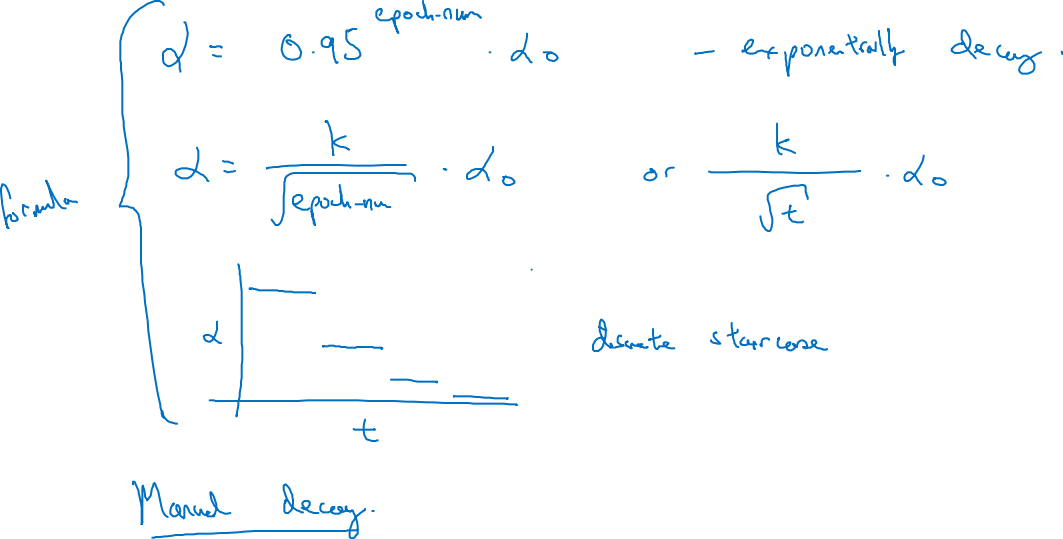 α = 0.95^epoch-num · α₀ - exponentially decay.
formula
α = k/√epoch-num · α₀ or k/√t · α₀
α
discrete staircase
t
Manual decay.